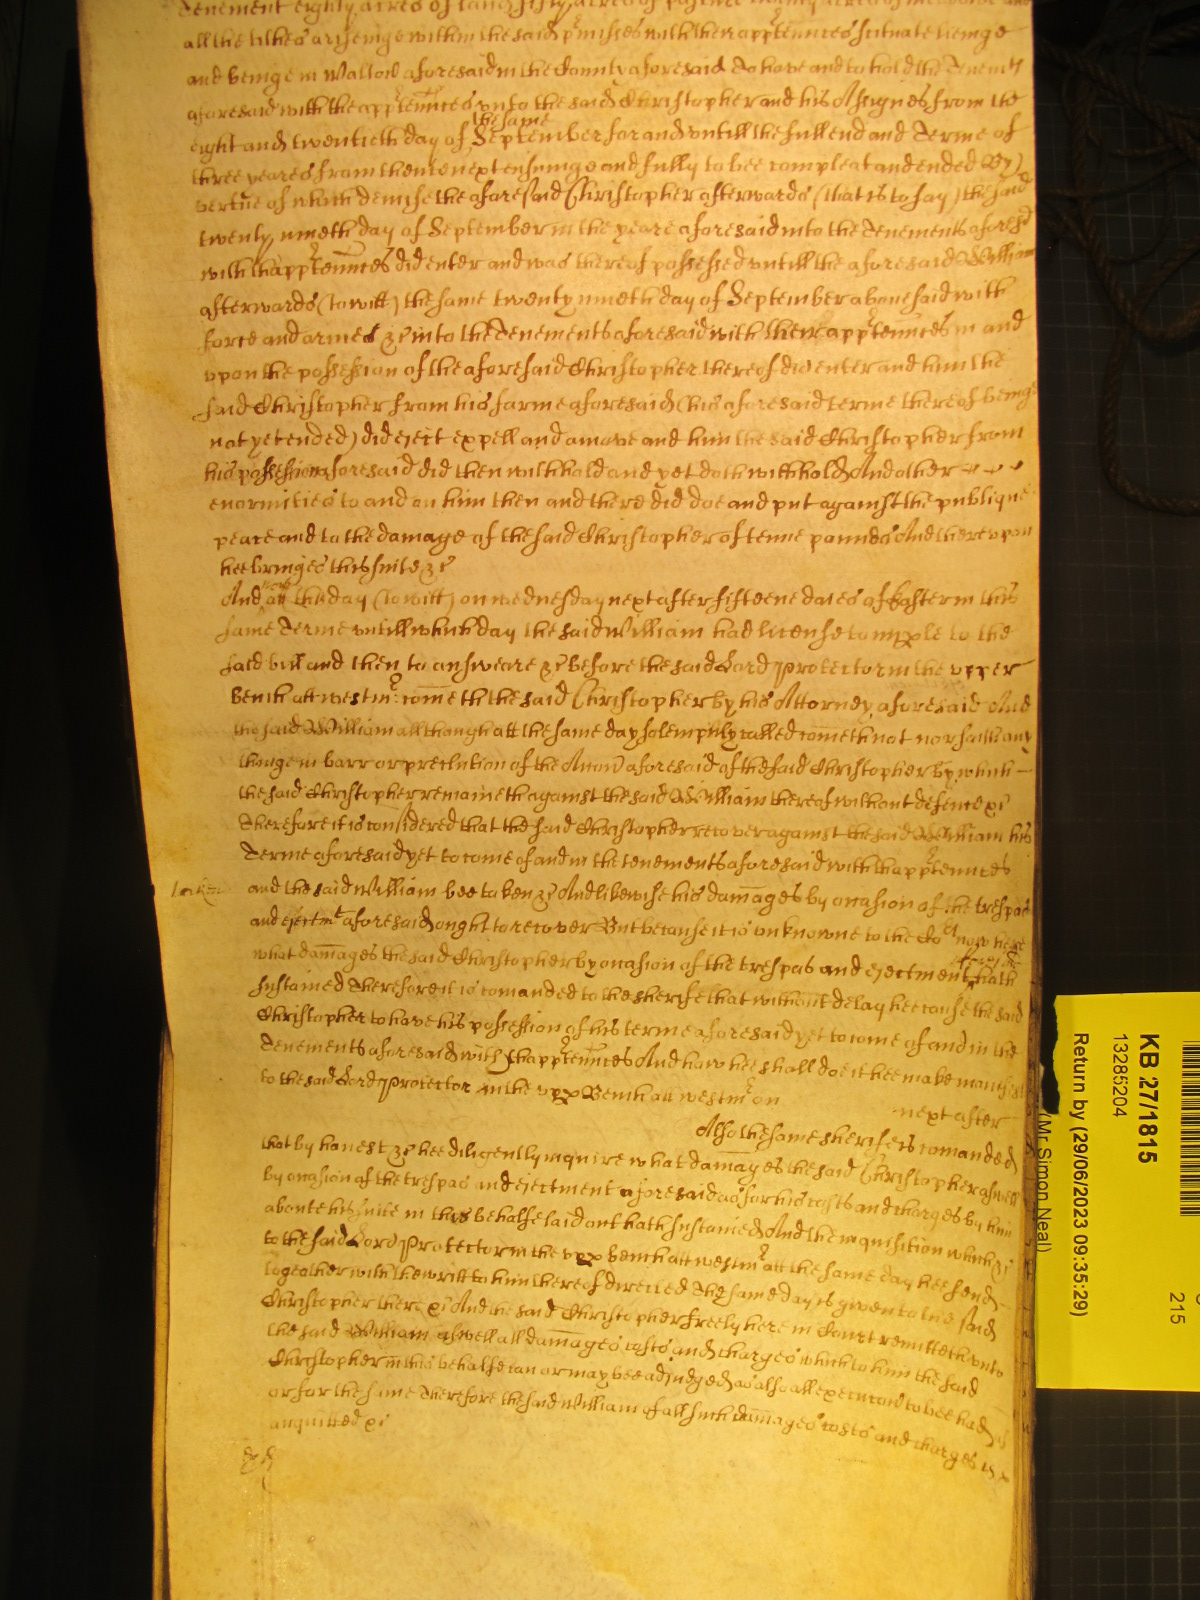 Tenement eighty acres of land fifty acres of pasture
all the tithes ariseinge within the said p'misses with their app'tenn'ces scituate lieinge
and beinge in Wallow aforesaid in the County aforesaid To have and to hold the Tenem'ts
aforesaid with the app'tenn'ces unto the said Christopher and his Assignes from the
the same
eight and twentieth day of September for and untill the full end and Terme of
three yeares from thence next ensuinge and fully to bee compleat and ended By
vertue of which demise the aforesaid Christopher afterwards (that is to say) the said
twenty nineth day of September in the yeare aforesaid into the Tenements aforesd
with thapp'tenn'ces did enter and was thereof possessed untill the aforesaid William
afterwards (to witt) the same twenty nineth day of September abovesaid with
force and armes &c into the Tenements aforesaid with their app'tenn'ces in and
upon the possession of the aforesaid Christopher thereof did enter and him the
said Christopher from his farme aforesaid (his aforesaid terme thereof beinge
not yet ended) did eject expell and amove and him the said Christopher from
his possession aforesaid did then withhold and yet doth withhold And other
enormities to and on him then and there did doe and put against the publique
peace and to the damage of the said Christopher of tenne pounds And thereupon
hee bringes this suite &c
And now att this day (to witt) on wednesday next after fifteene daies of Easter in this
same Terme untill which day the said William had license to imple to the
said bill and then to answeare &c before the said Lord Protector in the upper
Bench att Westm' cometh the said Christopher by his Attorney aforesaid And
the said William although att the same day solempnly called cometh not nor saith any
thinge in barr or preclution of the Accon aforesaid of the said Christopher by which
the said Christopher remaineth against the said William thereof without defence &c
Therefore it is considered that the said Christopher recover against the said William his
Terme aforesaid yet to come of and in the tenements aforesaid with thapp'tenn'ces
and the said William bee taken &c And likewise his damages by occasion of the trespas
and ejectmt aforesaid ought to recover But because it is unknowne to the Cort now here
what damages the said Christopher by occasion of the trespas and ejectment aforesaid hath
sustained Therefore it is comanded to the Sherife that without delay hee cause the said
Christopher to have his possession of his terme aforesaid yet to come of and in the
Tenements aforesaid with thapp'tenn'ces And how hee shall doe it hee make manifest
to the said Lord Protector in the upp Bench att Westm' on
next after
Also the same Sherife is comanded
that by honest &c hee diligently inquire what damages the said Christopher aswell
by occasion of the trespas and ejectment aforesaid as for his costs and charges by him
aboute his suite in this behalfe laid out hath sustained And the inquisition which &c
to the said Lord Protector in the upp bench att Westm' att the same day hee send
together with the writt to him thereof directed The same day is given to the said
Christopher there &c And the said Christopher freely here in Court remitteth unto
the said William aswell all damages costs and charges which to him the said
Christopher in this behalfe can or may bee adjudged as also all execucon to bee had
or for the same Therefore the said William of all such damages costs and charges is
acquitted &c
KB 27/1815
13285204
Return by (29/06/2023 09:35:29)
(Mr Simon Neal)
215